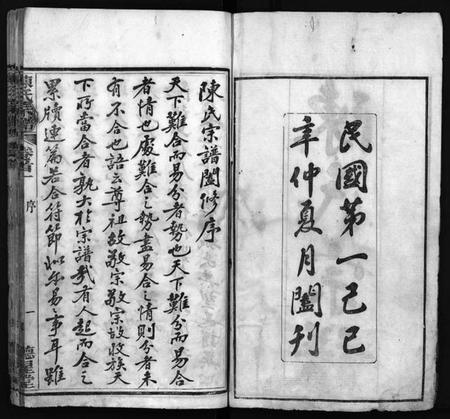 民國第一己巳
年仲夏月闔刊
陳氏宗譜闔修序
天下難合而易分者勢也天下難分而易合
者情也處難合之勢盡易合之情則分者未
有不合也語云尊祖故敬宗敬宗故收族天
下所當合者孰大於宗譜哉有人起而合之
累牘連篇若合符節似亦易事耳雖
陳氏宗譜
卷首
序
一
德星堂